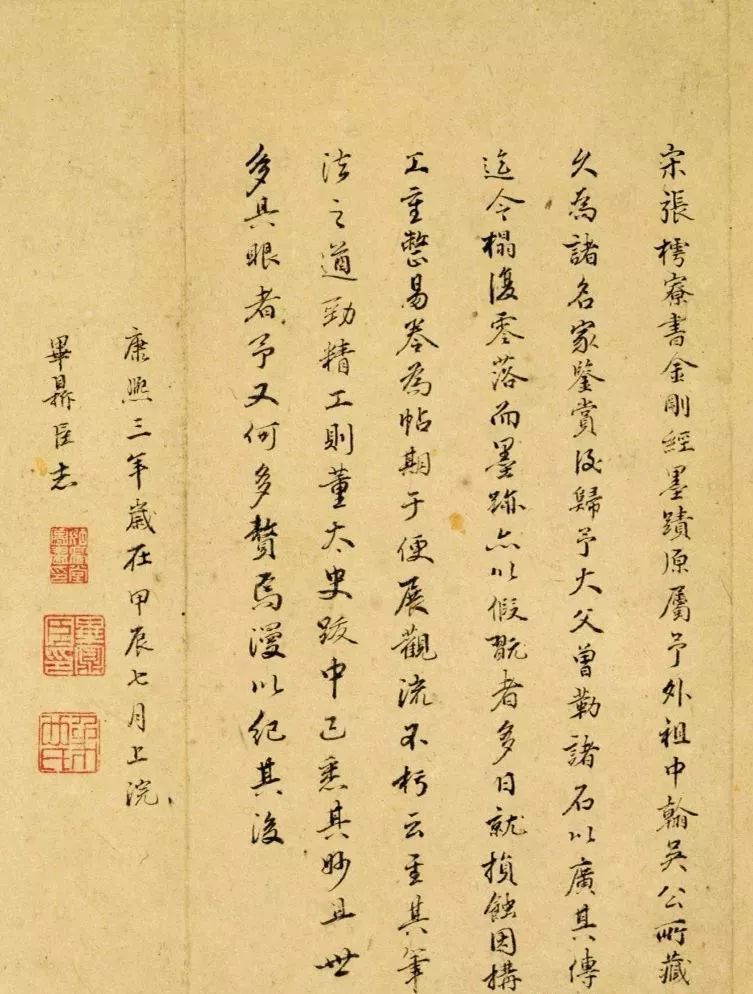 宋張樗寮書金剛經墨蹟原屬予外祖中翰吳公所藏
久為諸名家鑒賞後歸予大父曾勒諸石以廣其傳
迄今榻復零落而墨跡亦以假翫者多日就損蝕因搆
工重整易卷為帖期于便展觀流不朽云至其筆
法之遒勁精工則董太史跋中已悉其妙且世
多具眼者予又何多贅焉漫以紀其後
康熙三年歲在甲辰七月上浣
畢鼎臣志
畢鼎臣印